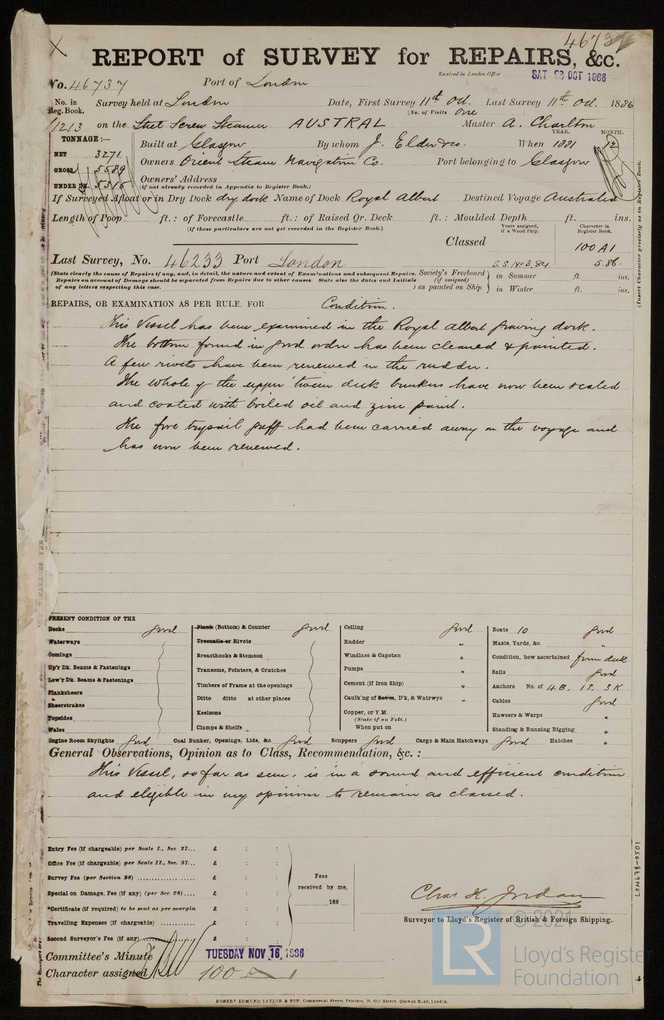 46737
REPORT of SURVEY for REPAIRS, &c.
Received in London Office
SAT 23 OCT 1886
No. 46737 Port of London
No. in Reg. Book. Survey held at London Date, First Survey 11th Oct. Last Survey 11th Oct. 1886
(No. of Visits One
1213 on the Steel Screw Steamer AUSTRAL Master A. Charlton
TONNAGE:— YEAR. MONTH.
NET 3271 Built at Glasgow By whom J. Elder & Co. When 1881 12
GROSS 5589 Owners Orient Steam Navigation Co. Port belonging to Glasgow
UNDER DK. Owners' Address
(if not already recorded in Appendix to Register Book.)
If Surveyed Afloat or in Dry Dock dry dock Name of Dock Royal Albert Destined Voyage Australia
Length of Poop ft.: of Forecastle ft.: of Raised Qr. Deck ft.: Moulded Depth ft. ins.
(If these particulars are not yet recorded in the Register Book.)
Years assigned, if a Wood Ship. Character in Register Book.
Classed 100 A1
Last Survey, No. 46233 Port London S.S. No 3, 84 5.86
(State clearly the cause of Repairs (if any, and, in detail, the nature and extent of Examinations and subsequent Repairs. Society's Freeboard in Summer ft. ins.
Repairs on account of Damage should be separated from Repairs due to other causes. State also the dates and Initials (if assigned)
of any letters respecting this case. as painted on Ship in Winter ft. ins.
(Insert Character precisely as in Register Book.
REPAIRS, OR EXAMINATION AS PER RULE, FOR Condition.
This Vessel has been examined in the Royal Albert graving dock.
The bottom found in good order has been cleaned & painted.
A few rivets have been renewed in the rudder.
The whole of the upper 'tween deck bunkers have now been scaled
and coated with boiled oil and zinc paint.
The fore trysail gaff had been carried away on the voyage and
has now been renewed.
PRESENT CONDITION OF THE
Decks good
Waterways
Comings
Up'r Dk. Beams & Fastenings
Low'r Dk. Beams & Fastenings
Planksheers
Sheerstrakes
Topsides
Wales
Engine Room Skylights good
Plank (Bottom) & Counter good
Treenails or Rivets
Breasthooks & Stemson
Transoms, Pointers, & Crutches
Timbers of Frame at the openings
Ditto ditto at other places
Keelsons
Clamps & Shelfs
Coal Bunker, Openings, Lids, &c. good
Ceiling good
Rudder "
Windlass & Capstan "
Pumps "
Cement (if Iron Ship) "
Caulking of Bottm, D'k, & Watrwys "
Copper, or Y.M.
(State if on Felt.)
When put on
Scuppers good
Cargo & Main Hatchways good
Boats 10 good
Masts, Yards, &c. "
Condition, how ascertained from deck
Sails good
Anchors No. of 4B. 1S. 3K
Cables good
Hawsers & Warps "
Standing & Running Rigging "
Hatches "
General Observations, Opinion as to Class, Recommendation, &c.:
This Vessel, so far as seen, is in a sound and efficient condition
and eligible in my opinion to remain as classed.
Entry Fee (if chargeable) per Scale I., Sec. 27... £ : :
Office Fee (if chargeable) per Scale II., Sec. 27... £ : :
Survey Fee (per Section 28) £ : :
Special on Damage, Fee (if any) (per Sec. 28) £ : :
*Certificate (if required) to be sent as per margin £ : :
Travelling Expenses (if chargeable) £ : :
Second Surveyor's Fee (if any) £ : :
Fees received by me, 188
Chas. H. Jordan
Surveyor to Lloyd's Register of British & Foreign Shipping.
Committee's Minute TUESDAY NOV 16, 1886
Character assigned 100 A 1
LON678-0501
© 2021
LR
Lloyd's Register
Foundation
ROBERT EDMUND TAYLOR & SON,